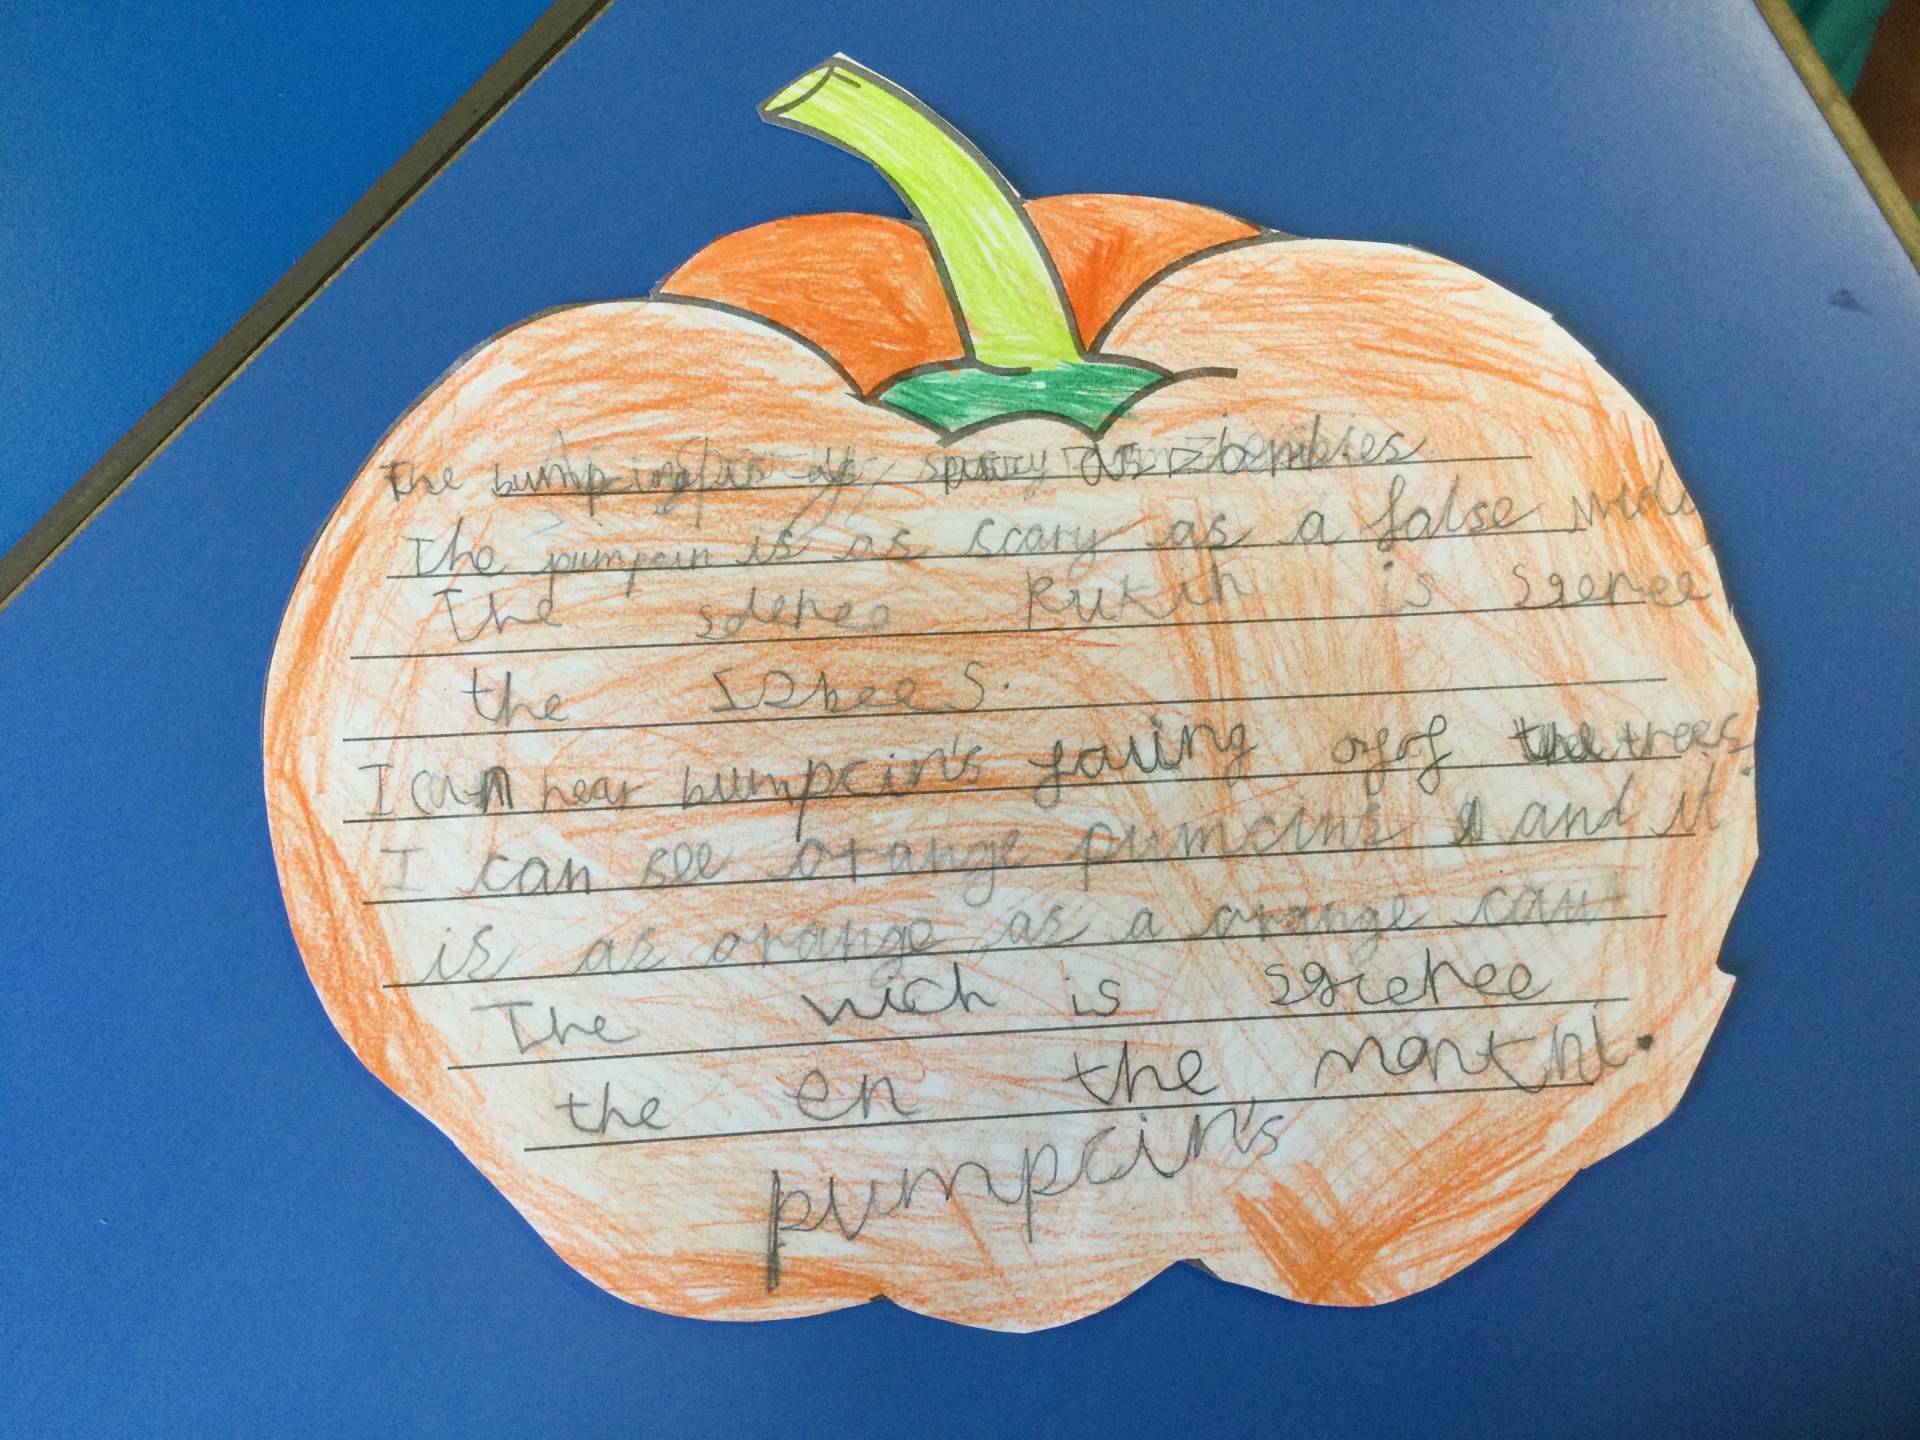 The bumpcing is as spuccy as zbembies.
The pumpcin is as scary as a false wido
The sderee Pukin is sgeree
the
I can hear bumpcin's failing off the trees.
I can see orange pumcins and it
is as orange as a orange caut
The wich is sgieree
the en the
pumpcin's